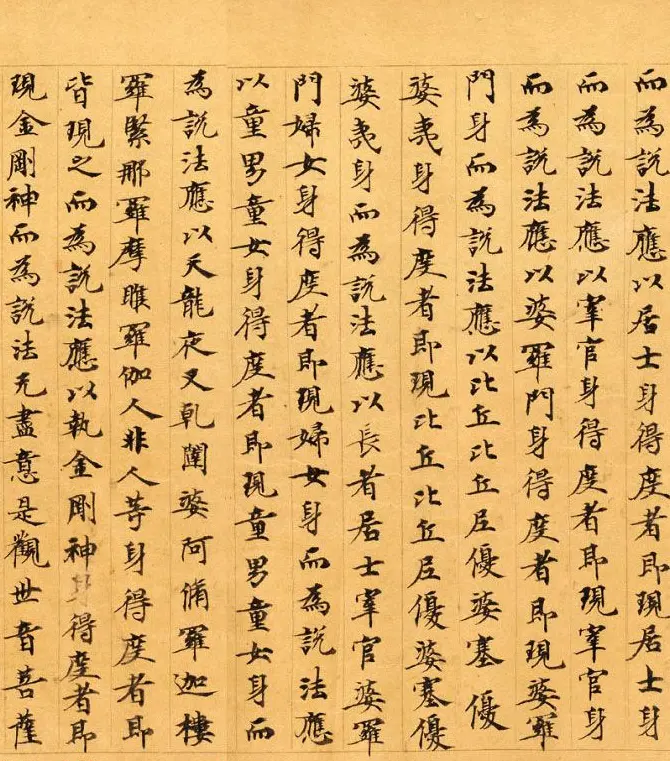 而為説法應以居士身得度者即現居士身
而為説法應以宰官身得度者即現宰官身
而為説法應以婆羅門身得度者即現婆羅
門身而為説法應以比丘比丘尼優婆塞優
婆夷身得度者即現比丘比丘尼優婆塞優
婆夷身而為説法應以長者居士宰官婆羅
門婦女身得度者即現婦女身而為説法應
以童男童女身得度者即現童男童女身而
為説法應以天龍夜叉乹闥婆阿脩羅迦樓
羅緊那羅摩睺羅伽人非人等身得度者即
皆現之而為説法應以執金剛神身得度者即
現金剛神而為説法无盡意是觀世音菩薩